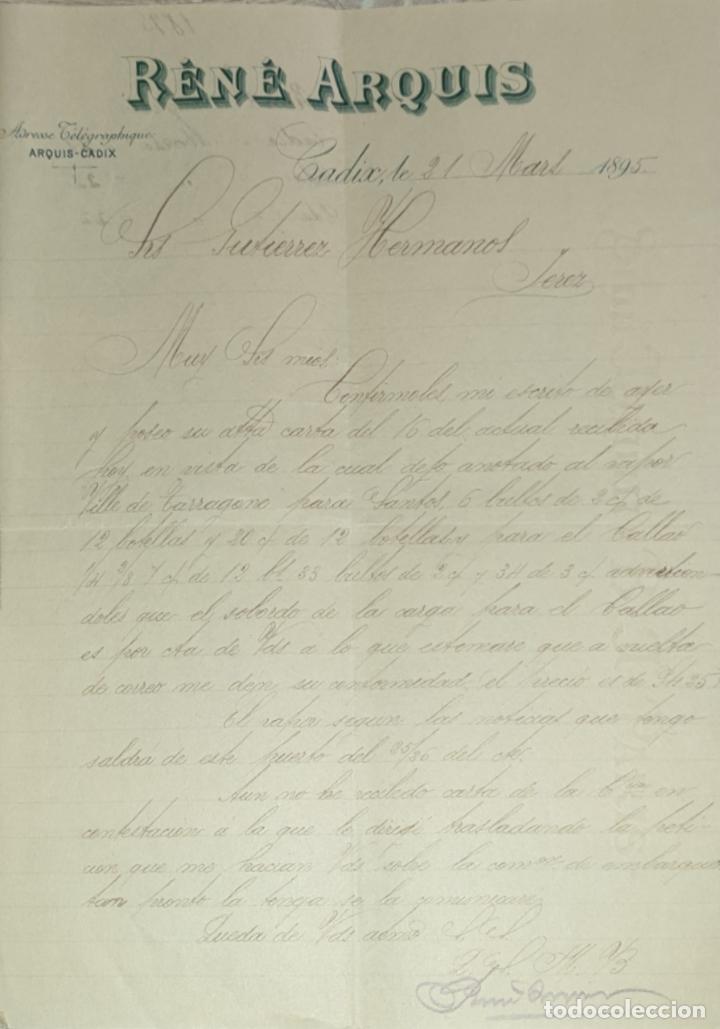 RÉNÉ ARQUIS
Adresse Télégraphique
ARQUIS-CADIX
Cadix, le 21 Mars 1895
Srs Gutierrez Hermanos
Jerez
Muy Srs mios:
Confirmoles mi escrito de ayer
y poseo su atta carta del 16 del actual recibida
hoy, en vista de la cual dejo anotado al vapor
Ville de Tarragone para Santos, 6 bultos de 2 c/ de
12 botellas y 20 c/ de 12 botellas y para el Callao
1/4 2/8 7 c/ de 12 bs 33 bultos de 2 c/ y 34 de 3 c/ advirtien
doles que el sobordo de la carga para el Callao
es por cta de Vds á lo que estimare que a vuelta
de correo me den su conformidad, el precio es de 25
El vapor segun las noticias que tengo
saldrá de este puerto del 25/26 del cte.
Aun no he recibido carta de la en
contestacion á la que le dirijí trasladando la peti
cion que me hacian Vds sobre la de embarque
tan pronto la tenga se la comunicare
Queda de Vds S. S.
todocoleccion